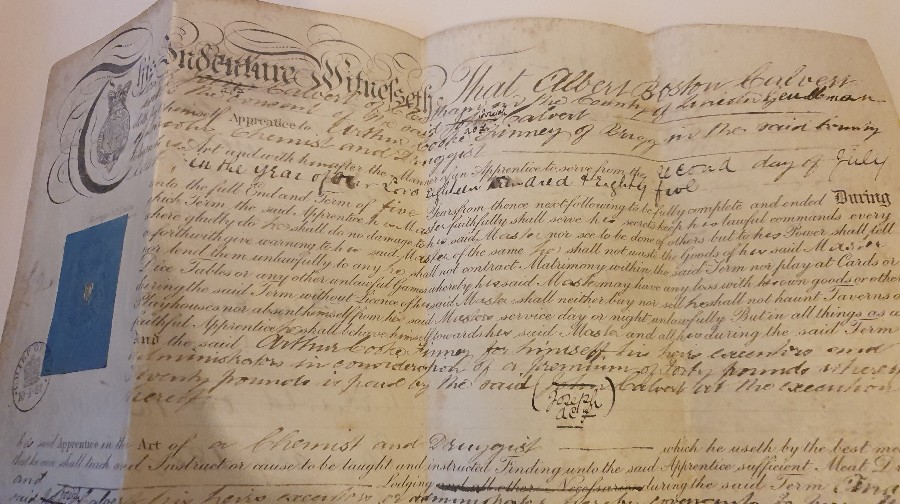 This Indenture Witnesseth That Albert Boston Calvert
Calvert of Chapel in the County of Lincoln Gentleman
the Consent of the said Joseph Calvert
himself Apprentice to Arthur Cooke Finney of Brigg in the said County
Chemist and Druggist
Art and with him after the Manner of an Apprentice to serve from the second day of July
in the Year of Our Lord Eighteen Hundred & Eighty five
unto the full End and Term of five Years from thence next following to be fully complete and ended During
which Term the said Apprentice his Master faithfully shall serve his secrets keep his lawful commands every
where gladly do he shall do no damage to his said Master nor see to be done of others but to his Power shall tell
or forthwith give warning to his said Master of the same he shall not waste the Goods of his said Master
nor lend them unlawfully to any he shall not contract Matrimony within the said Term nor play at Cards or
Dice Tables or any other unlawful Games whereby his said Master may have any loss with his own goods or other
during the said Term without Licence of his said Master shall neither buy nor sell he shall not haunt Taverns or
Playhouses nor absent himself from his said Masters service day or night unlawfully But in all things as a
faithful Apprentice he shall behave himself towards his said Master and all his during the said Term
And the said Arthur Cooke Finney for himself his heirs executors and
administrators in consideration of a premium of forty pounds whereof
twenty pounds is paid by the said (John) Calvert at the execution
hereof
Joseph
his said Apprentice in the Act of a Chemist and Druggist which he useth by the best me
that he can shall teach and Instruct or cause to be taught and instructed Finding unto the said Apprentice sufficient Meat Dr
Lodging and all other Necessaries during the said Term
and
Calvert his heirs executors or administrators